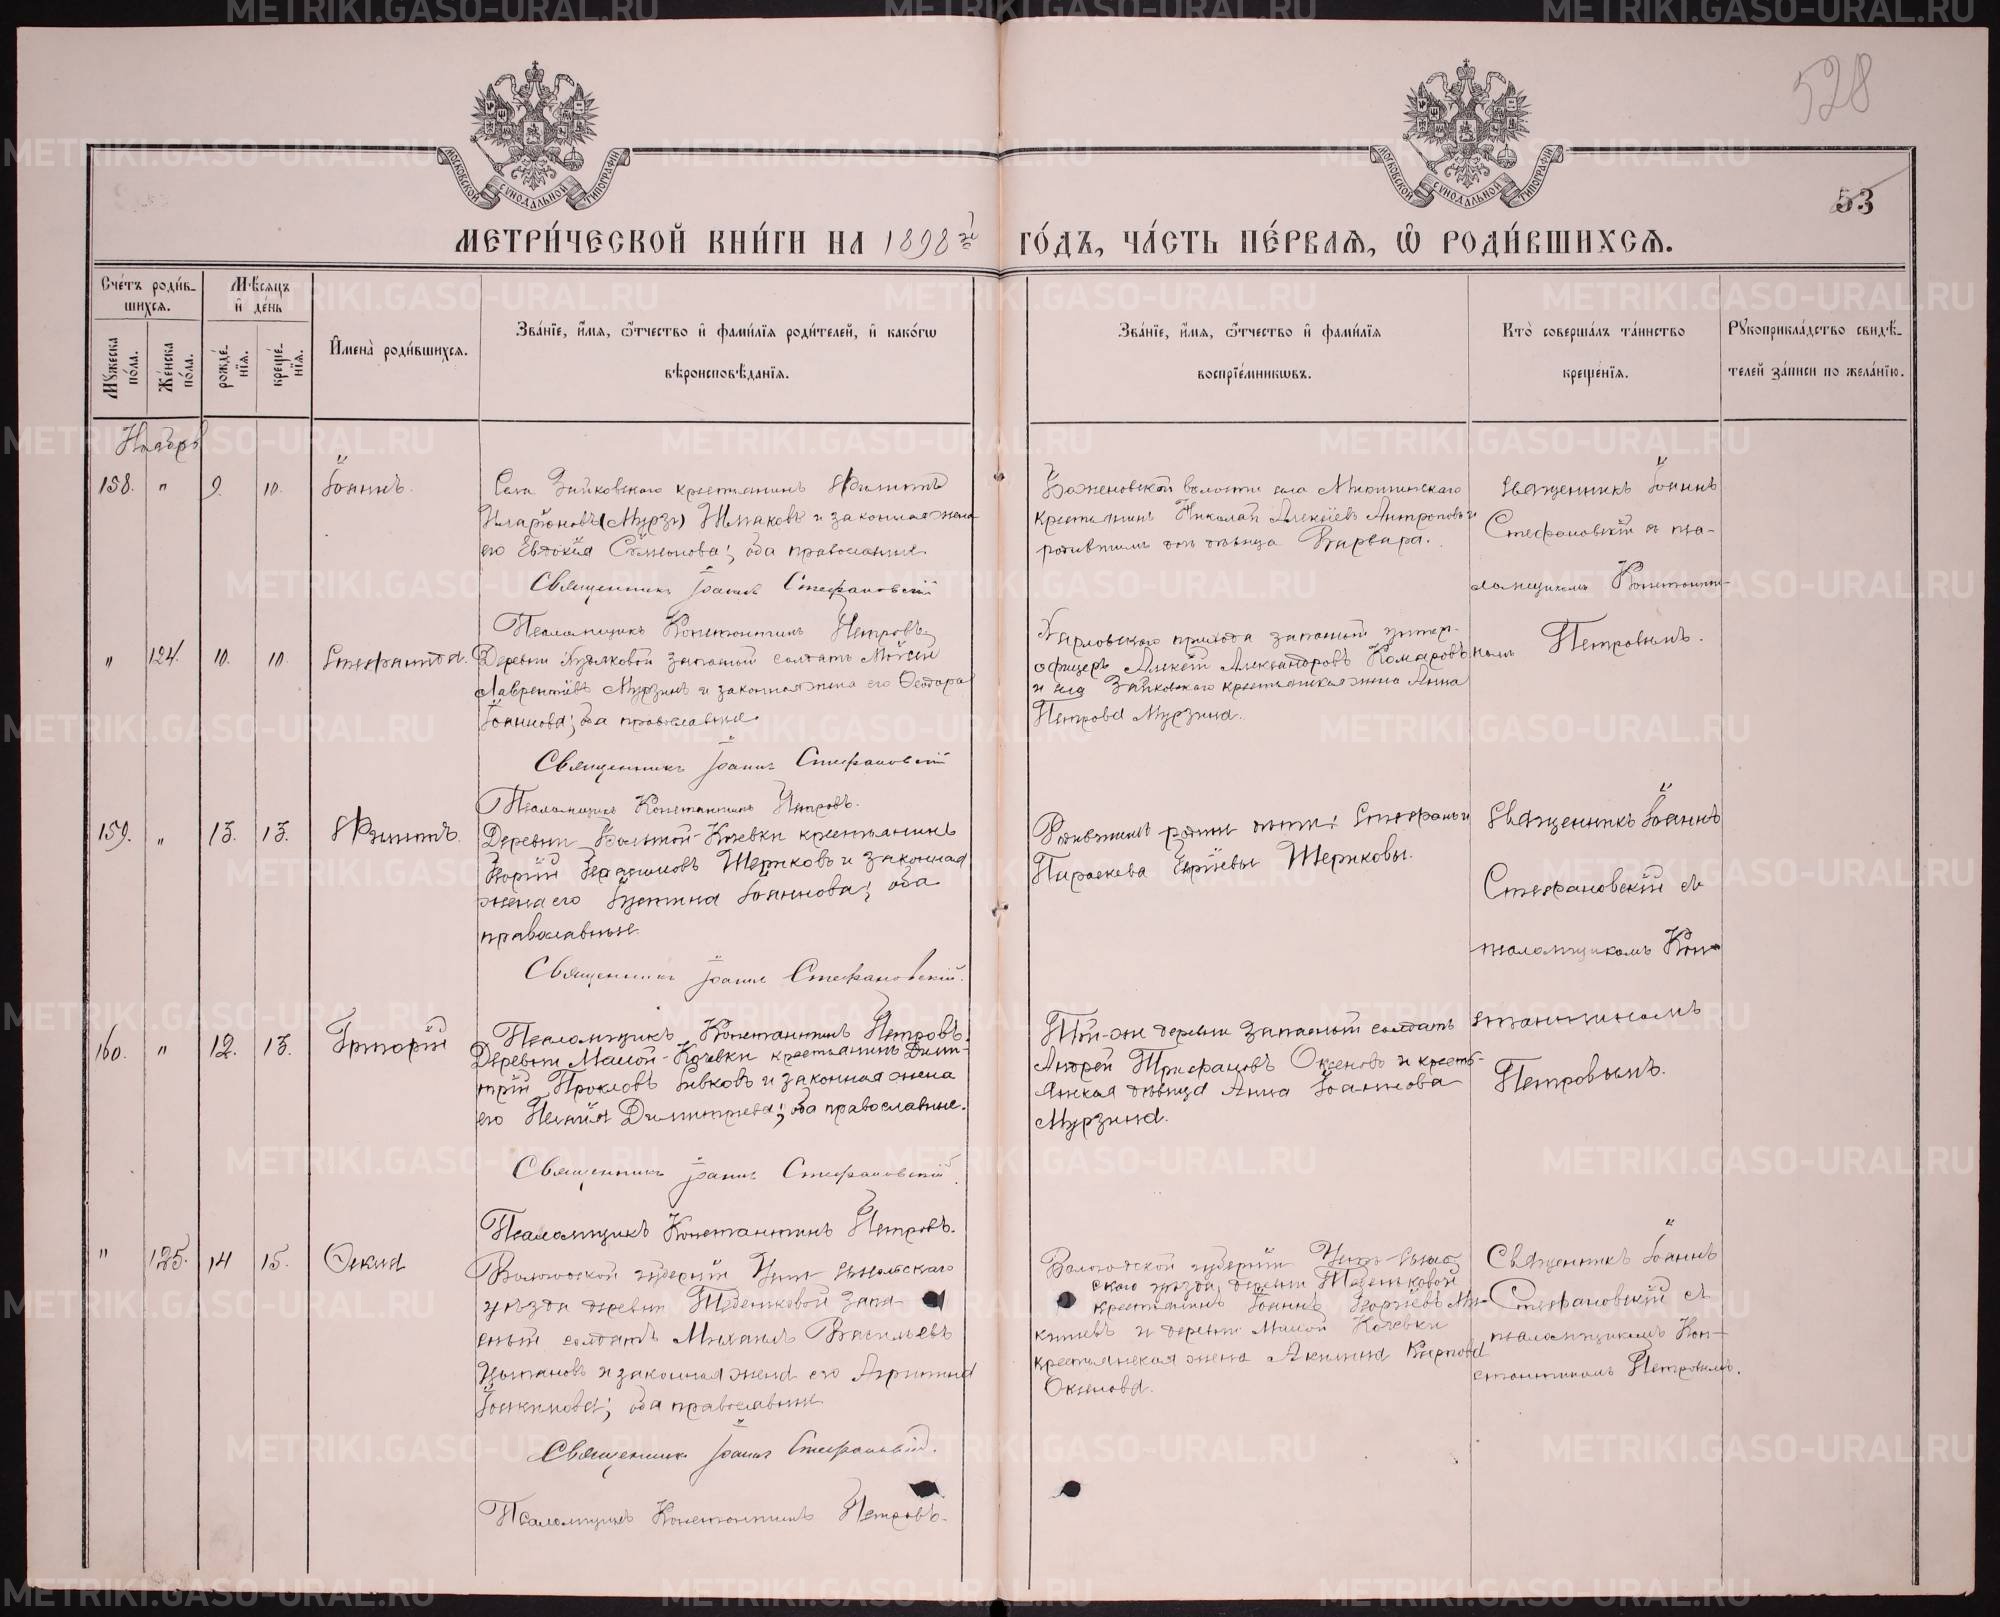 528
53
МОСКОВСКОЙ СУНОДАЛЬНОЙ ТИПОГРАФИИ
МОСКОВСКОЙ СУНОДАЛЬНОЙ ТИПОГРАФИИ
МЕТРИ́ЧЕСКОЙ КНИ́ГИ НА 1898й ГО́ДЪ, ЧА́СТЬ ПЕ́РВАЯ, Ѡ РОДИ́ВШИХСЯ.
Сче́тъ роди́в-
шихся.
Му́жеска по́ла.
Же́нска по́ла.
Мѣ́сяцъ
и҆ де́нь
рожде́нїя.
креще́нїя.
И҆мена̀ роди́вшихся.
Зва́нїе, и҆́мя, ѻ҆́тчество и҆ фами́лїя роди́телей, и҆ како́гѡ
вѣроисповѣ́данїя.
Зва́нїе, и҆́мя, ѻ҆́тчество и҆ фами́лїя
воспрїе́мникѡвъ.
Кто̀ соверша́лъ та́инство
креще́нїя.
Рукоприкла́дство свидѣ́-
телей за́писи по жела́нїю.
Ноябрь
158. " 9. 10. Іоаннъ.
Села Зайковскаго крестьянинъ Филиппъ
Иларіоновъ (Мурз) Шмаковъ и законная жена
его Евдокія Сѵмеонова; оба православные
Священникъ Іоаннъ Стефановскій
Псаломщикъ Константинъ Петровъ
Баженовской волости села
крестьянинъ Николай Алексіевъ Антроповъ и
дѣвица Варвара.
Священникъ Іоаннъ
Стефановскій съ пса-
ломщикомъ Константи-
номъ Петровымъ.
" 124. 10. 10. Стефанида.
Деревни запасный солдатъ Мойсей
Лаврентіевъ Мурзинъ и законная жена его Ѳеодора
Іоаннова; оба православные
Священникъ Іоаннъ Стефановскій
Псаломщикъ Константинъ Петровъ.
Харловскаго прихода запасный унтер-
офицеръ Алексѣй Александровъ Комаровъ
и села Зайковскаго крестьянская жена Анна
Петрова Мурзина.
159. " 13. 13. Филиппъ.
Деревни Большой-Кочевки крестьянинъ
Георгій Герасимовъ Шериковъ и законная
жена его Іустина Іоаннова; оба
православные
Священникъ Іоаннъ Стефановскій.
Псаломщикъ Константинъ Петровъ.
дѣти: Стефанъ и
Параскева Шериковы.
Священникъ Іоаннъ
Стефановскій съ
псаломщикомъ Кон-
стантиномъ
Петровымъ.
160. " 12. 13. Григорій
Деревни Малой-Кочевки крестьянинъ Дими-
трій Прокловъ Сивковъ и законная жена
его Димитріева; оба православные.
Священникъ Іоаннъ Стефановскій.
Псаломщикъ Константинъ Петровъ.
Той-же деревни запасный солдатъ
Андрей Трифановъ Оксеновъ и кресть-
янская дѣвица Анна Іоаннова
Мурзина.
" 125. 14 15. Фекла
Вологодской губерніи Усть-Сысольскаго
уѣзда деревни запа-
сный солдатъ Михаилъ Васильевъ
Цыпановъ и законная жена его Агрипина
оба православные
Священникъ Іоаннъ Стефановскій.
Псаломщикъ Константинъ Петровъ.
Вологодской губерніи Усть-Сысоль
скаго уѣзда деревни
крестьянинъ Іоаннъ Георгіевъ
и деревни Малой Кочевки
крестьянская жена Акилина Карпова
Оксенова.
Священникъ Іоаннъ
Стефановскій съ
псаломщикомъ Кон-
стантиномъ Петровымъ.
METRIKI.GASO-URAL.RU